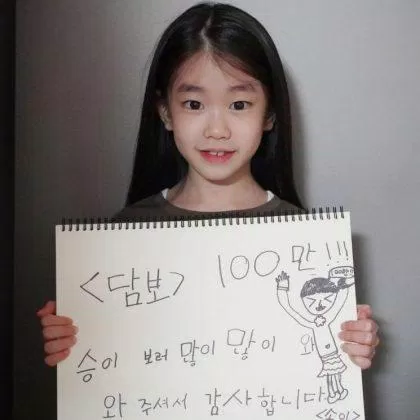 <담보> 100만!!!
승이 보러 많이 많이 와
와 주셔서 감사합니다
<승이>